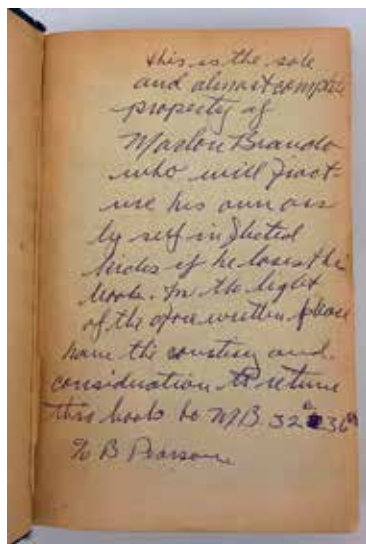 this is the sole
and almost complete
property of
Marlon Brando
who will fract-
ure his own ass
by self inflicted
kicks if he loses this
book. In the light
of the afore written please
have the courtesy and
consideration to return
this book to M.B. 52 W 36th
% B Pearson